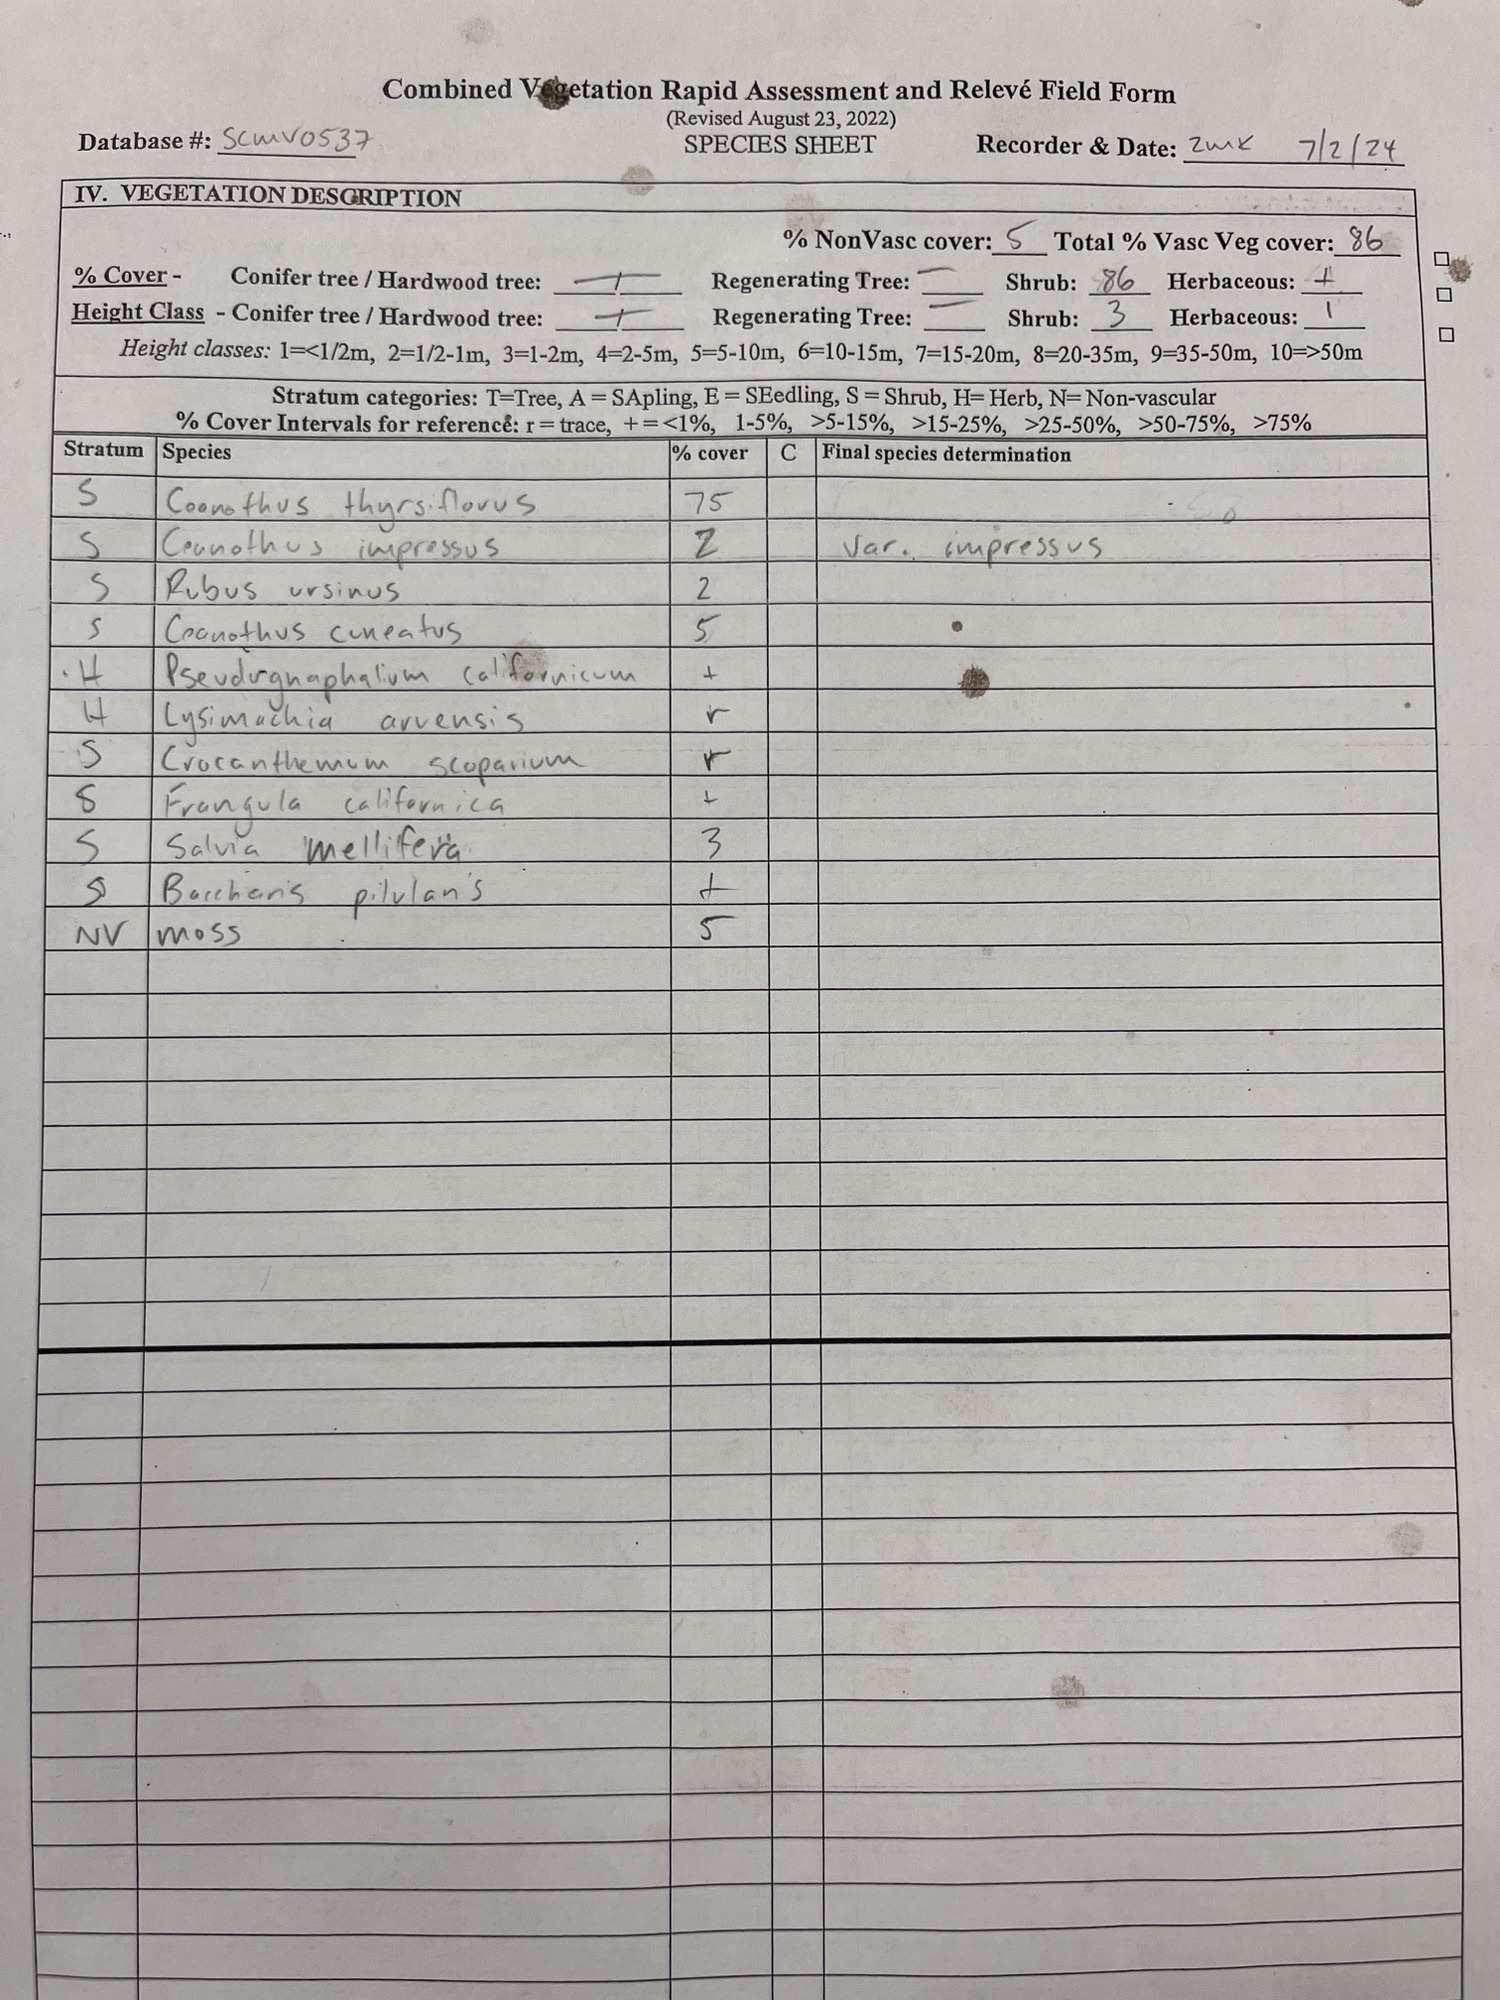 Combined Vegetation Rapid Assessment and Relevé Field Form
(Revised August 23, 2022)
Database #: SCMV0537 SPECIES SHEET Recorder & Date: ZMK 7/2/24
IV. VEGETATION DESCRIPTION
% NonVasc cover: 5 Total % Vasc Veg cover: 86
% Cover - Conifer tree / Hardwood tree: —/— Regenerating Tree: — Shrub: 86 Herbaceous: +
Height Class - Conifer tree / Hardwood tree: —/— Regenerating Tree: — Shrub: 3 Herbaceous: 1
Height classes: 1=<1/2m, 2=1/2-1m, 3=1-2m, 4=2-5m, 5=5-10m, 6=10-15m, 7=15-20m, 8=20-35m, 9=35-50m, 10=>50m
Stratum categories: T=Tree, A = SApling, E = SEedling, S = Shrub, H= Herb, N= Non-vascular
% Cover Intervals for reference: r = trace, + = <1%, 1-5%, >5-15%, >15-25%, >25-50%, >50-75%, >75%
Stratum Species % cover C Final species determination
S Ceanothus thyrsiflorus 75
S Ceanothus impressus 2 var. impressus
S Rubus ursinus 2
S Ceanothus cuneatus 5
H Pseudognaphalium californicum +
H Lysimachia arvensis r
S Crocanthemum scoparium r
S Frangula californica +
S Salvia mellifera 3
S Baccharis pilularis +
NV moss 5